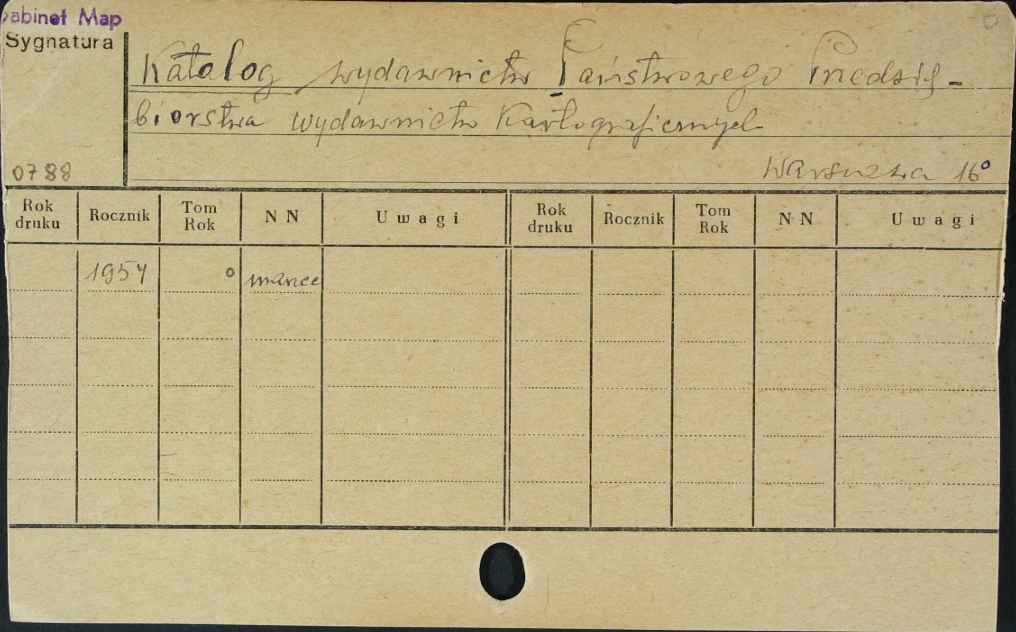 abinet Map
Sygnatura
Katalog wydawnictw Państwowego Przedsię-
biorstwa wydawnictw Kartograficznych
0788
Warszawa 16°
Rok druku Rocznik Tom Rok NN Uwagi Rok druku Rocznik Tom Rok NN Uwagi
1957 ° marzec